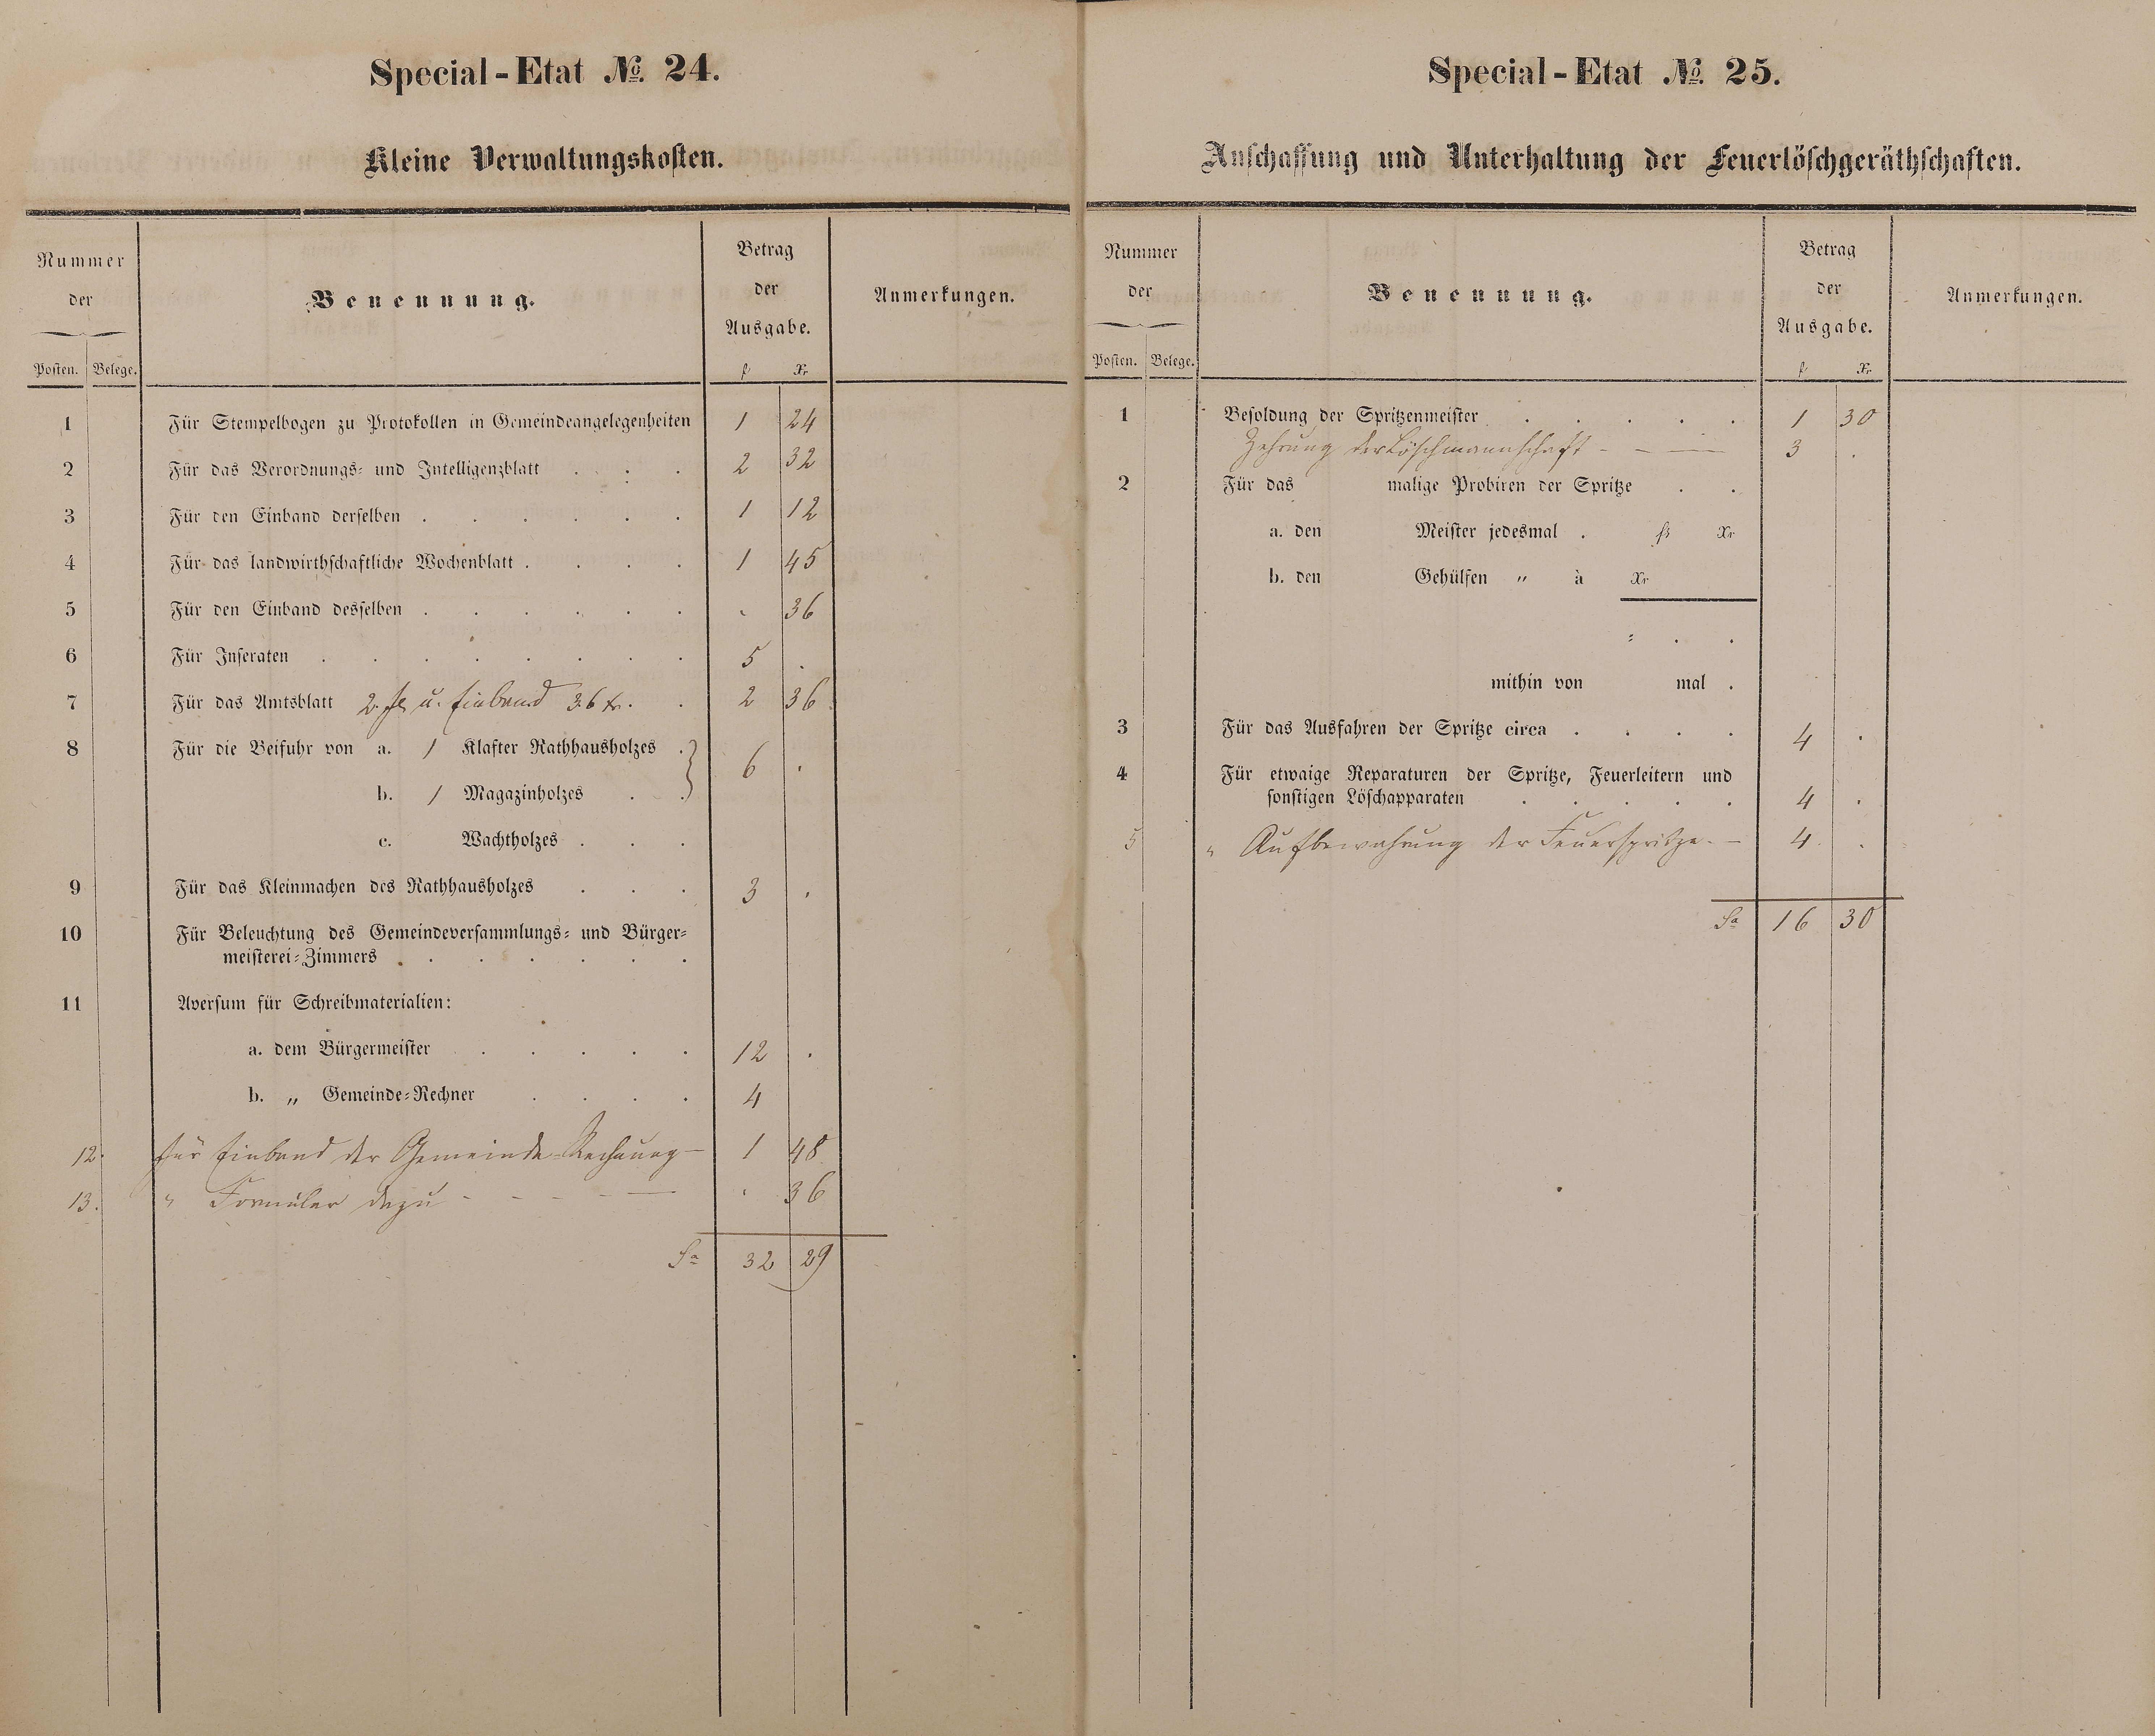 Special-Etat No. 24.
Kleine Verwaltungskosten.
Nummer
der
Posten. Belege.
Benennung.
Betrag
der
Ausgabe.
fl Xr
Anmerkungen.
1 Für Stempelbogen zu Protokollen in Gemeindeangelegenheiten 1 24
2 Für das Verordnungs- und Intelligenzblatt . . . 2 32
3 Für den Einband derselben . . . . . . 1 12
4 Für das landwirthschaftliche Wochenblatt . . . . 1 45
5 Für den Einband desselben . . . . . . . 36
6 Für Inseraten . . . . . . . . 5 .
7 Für das Amtsblatt 2 fl u. Einband 36 kr. . 2 36
8 Für die Beifuhr von a. 1 Klafter Rathhausholzes . 6 .
b. 1 Magazinholzes . .
c. Wachtholzes . . .
9 Für das Kleinmachen des Rathhausholzes . . . 3 .
10 Für Beleuchtung des Gemeindeversammlungs- und Bürger-
meisterei-Zimmers . . . . . .
11 Aversum für Schreibmaterialien:
a. dem Bürgermeister . . . . . 12 .
b. „ Gemeinde-Rechner . . . . 4
12. für Einband der Gemeinde-Rechnung — 1 48
13. " Formular dazu - - - - — . 36
Sa 32 29
Special-Etat No. 25.
Anschaffung und Unterhaltung der Feuerlöschgeräthschaften.
Nummer
der
Posten. Belege.
Benennung.
Betrag
der
Ausgabe.
fl Xr
Anmerkungen.
1 Besoldung der Spritzenmeister . . . . . 1 30
Zehrung der Löschmannschaft - - — 3 .
2 Für das malige Probiren der Spritze . .
a. den Meister jedesmal . fl Xr
b. den Gehülfen „ à Xr
= . .
mithin von mal .
3 Für das Ausfahren der Spritze circa . . . . 4 .
4 Für etwaige Reparaturen der Spritze, Feuerleitern und
sonstigen Löschapparaten . . . . . 4 .
5 " Aufbewahrung der Feuerspritze. - 4 .
Sa 16 30